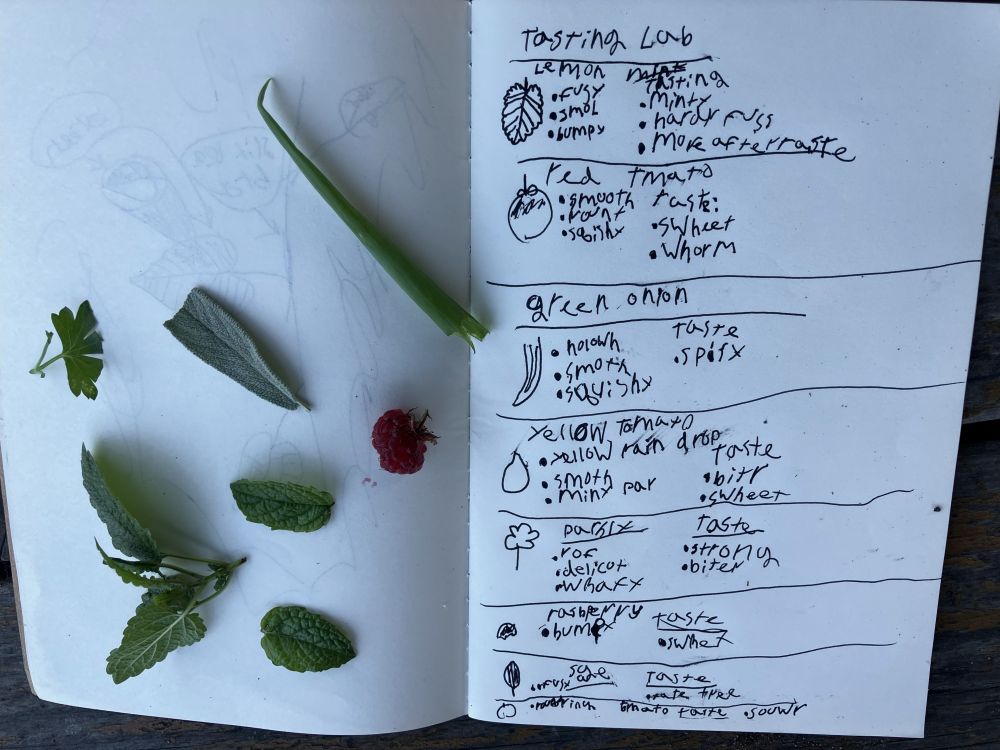 Tasting Lab
Lemon mint tasting
•fusy •minty
•smol •hardr fuss
•bumpy •more aftertaste
red tmato
•smooth taste:
•rount •swheet
•sqishy •whorm
green onion
•holowh taste
•smoth •spisy
•squishy
yellow tomato
•yellow rain drop taste
•smoth •bitr
•miny par •swheet
parsly taste
•rof •strong
•delicot •biter
•whafy
rasberry taste
•bumpy •swhet
sage taste
•fusy
tmato taste •souwr